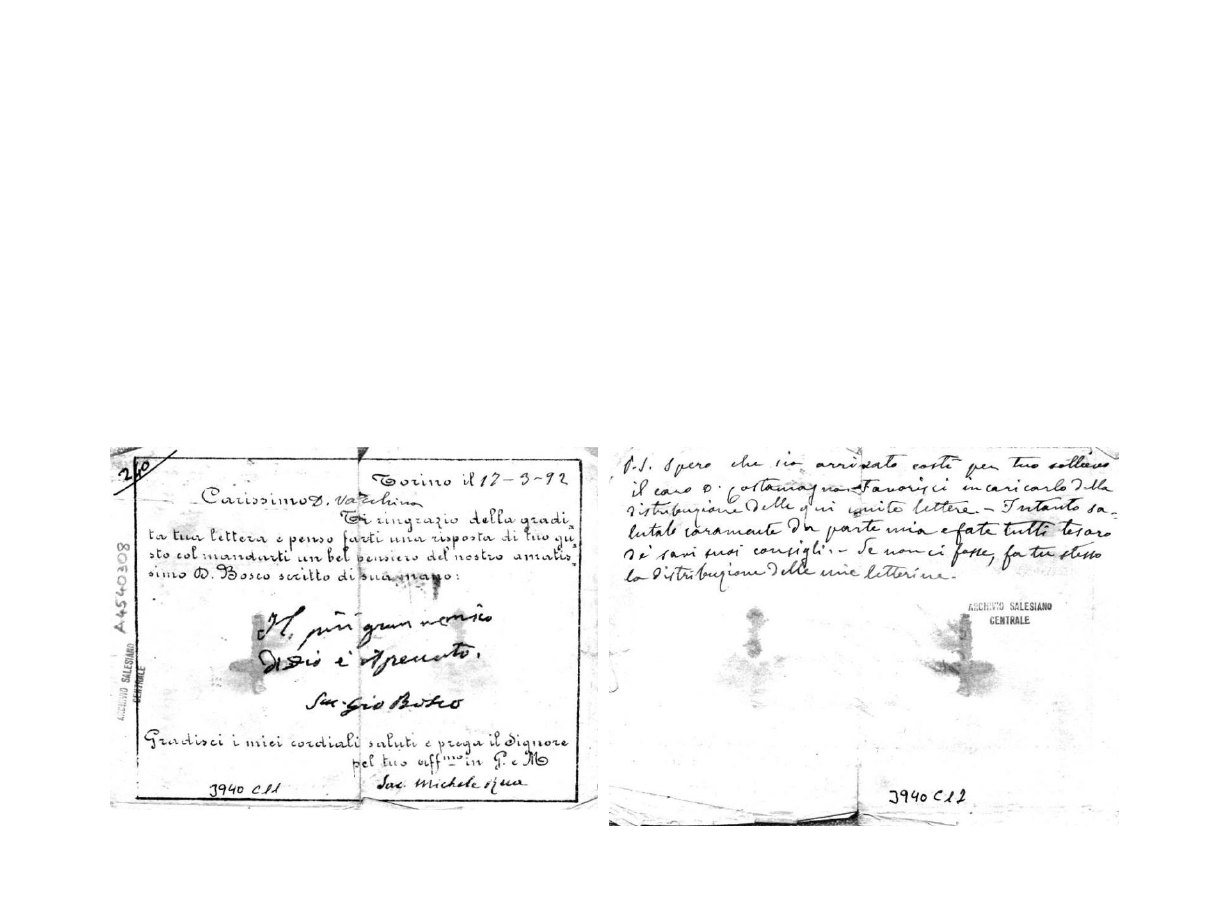 240
Torino il 17-3-92
Carissimo D. Vacchina
Ti ringrazio della gradi-
ta tua lettera e penso farti una risposta di tuo gu-
sto col mandarti un bel pensiero del nostro amatis-
simo D. Bosco scritto di sua mano:
Il più gran nemico
di Dio è il peccato.
Sac. Gio Bosco
Gradisci i miei cordiali saluti e prega il Signore
pel tuo aff.mo in G. e M
Sac. Michele Rua
3940 C11
A4540308
ARCHIVIO SALESIANO
CENTRALE
P.S. Spero che sia arrivato costì per tuo sollievo
il caro D. Costamagna. Favorisci incaricarlo della
distribuzione delle qui unite lettere. - Intanto sa-
lutalo caramente da parte mia e fate tutti tesoro
de' savi suoi consigli. - Se non ci fosse, fa tu stesso
la distribuzione delle mie letterine.
ARCHIVIO SALESIANO
CENTRALE
3940 C12